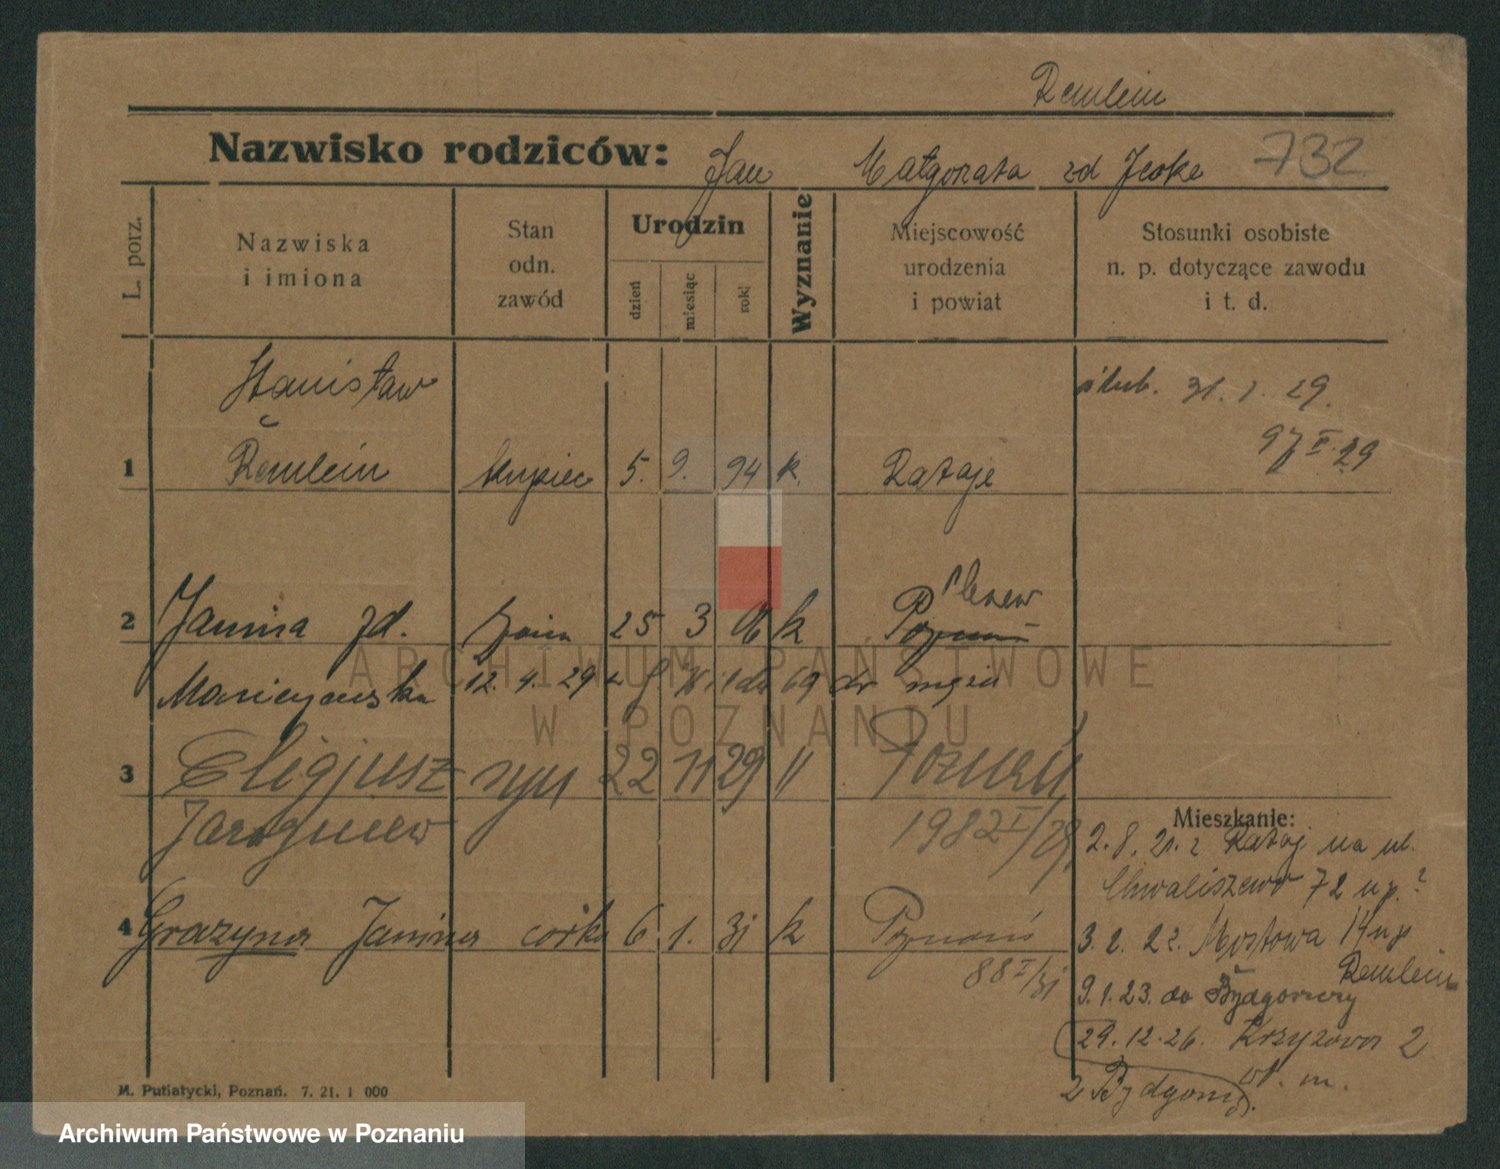 Remlein
Nazwisko rodziców: Jan Małgorzata zd Jeske 732
L. porz.
Nazwiska i imiona
Stan odn. zawód
Urodzin
dzień
miesiąc
rok
Wyznanie
Miejscowość urodzenia i powiat
Stosunki osobiste n. p. dotyczące zawodu i t. d.
Stanisław ślub. 31. 1. 29.
97 II. 29
1 Remlein kupiec 5. 9. 94 k. Rataje
Pleszew
2 Janina zd. żona 25 3 06 k Poznań
12. 4. 29 do męża
3 Eligjusz syn 22 11 29 " Poznań
Jarogniew 1982 I/29
Mieszkanie:
2. 8. 21. z Rataj na ul.
Chwaliszewo 72
4 Grazyna Janina córka 6 1. 31 k Poznań
88 I/31
3. 2. 22. Mostowa
Remlein
9. 1. 23. do Bydgoszczy
29. 12. 26. Krzyzowa 2
z Bydgoszcz. m.
M. Putiatycki, Poznań. 7. 21. 1 000
ARCHIWUM PAŃSTWOWE
W POZNANIU
Archiwum Państwowe w Poznaniu